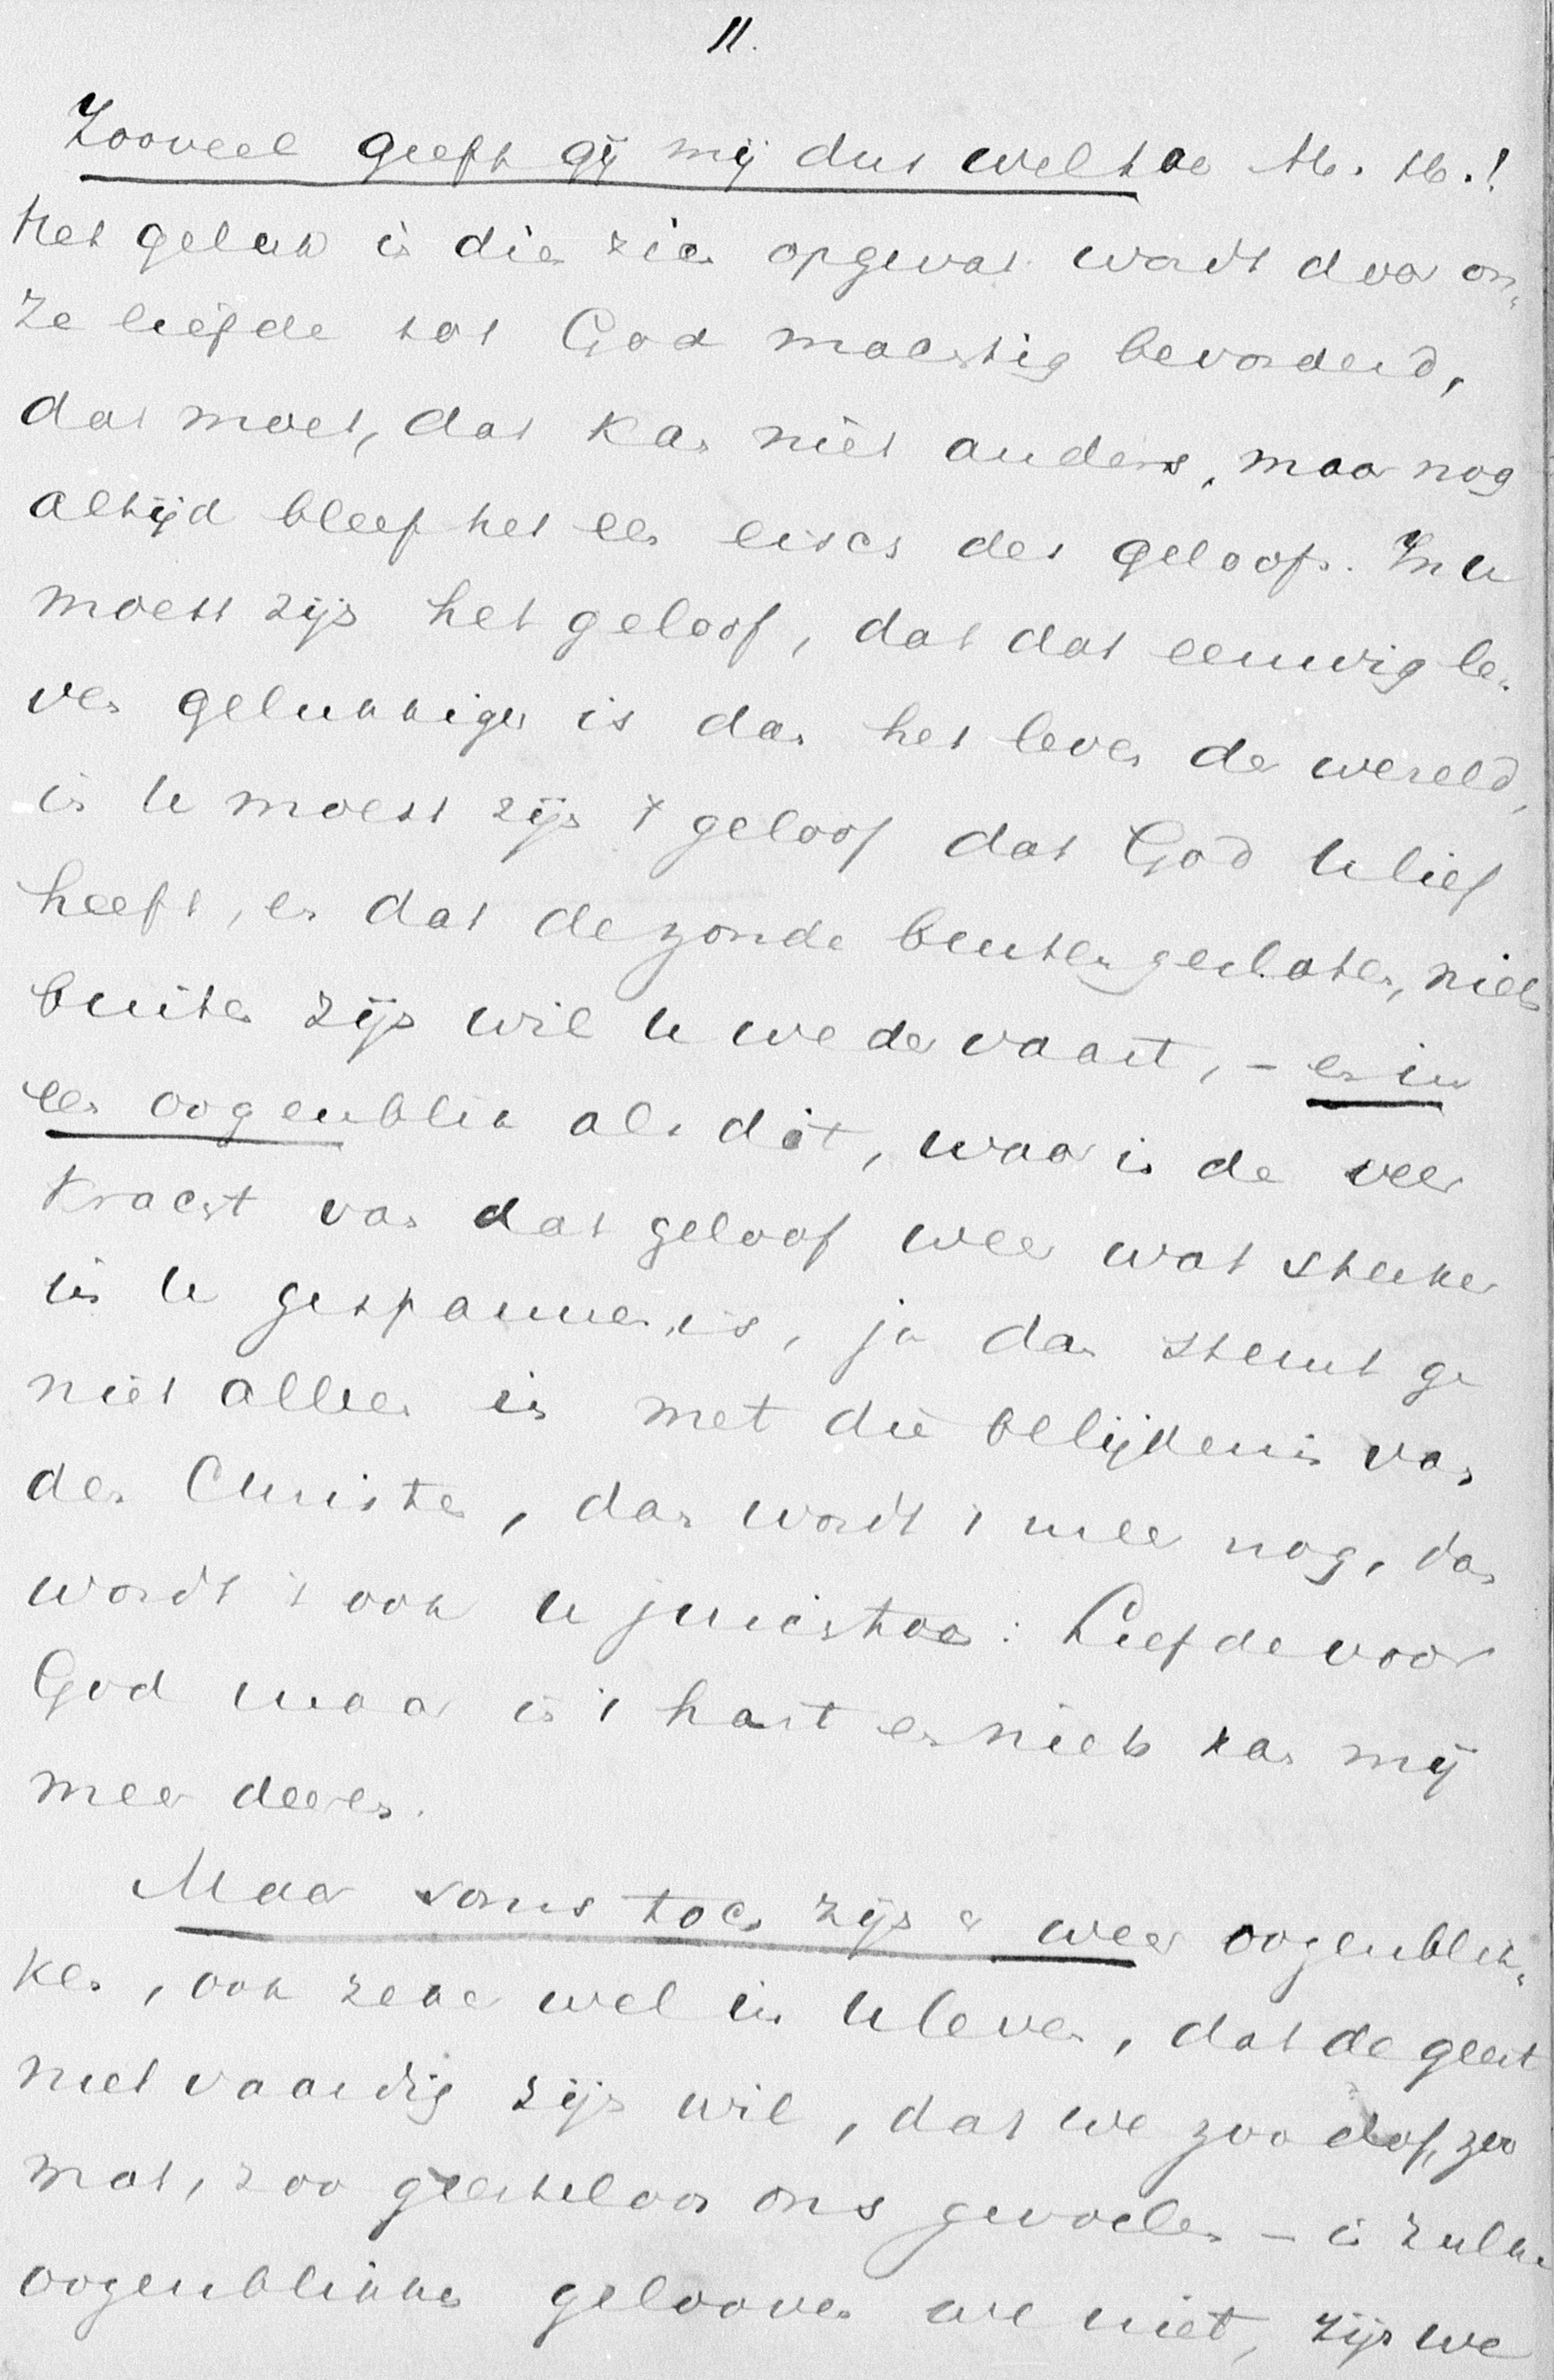 11.
Zooveel geeft gij mij dus wel toe M. H.!
Het geluk in dien zin opgevat wordt door on-
ze liefde tot God machtig bevorderd,
dat moet, dat kan niet anders, maar nog
altijd bleef het een eisch des geloofs. In u
moest zijn het geloof, dat dat eeuwig le-
ven gelukkiger is dan het leven der wereld,
in u moest zijn 't geloof dat God u lief
heeft, en dat de zonde buitengesloten, niets
buiten zijn wil u wedervaart, - en in
een oogenblik als dit, waarin de veer
kracht van dat geloof weer wat sterker
in u gespannen is, ja dan stemt ge
niet alleen in met die belijdenis van
den Christen, dan wordt 't meer nog, dan
wordt 't ook u juichtoon: Liefde voor
God maar in 't hart en niets kan mij
meer deeren.
Maar soms toch zijn er weer oogenblik-
ken, ook zeker wel in u leven, dat de geest
niet vaardig zijn wil, dat we zoo dof, zoo
mat, zoo geesteloos ons gevoelen - in zulke
oogenblikken gelooven we niet, zijn we